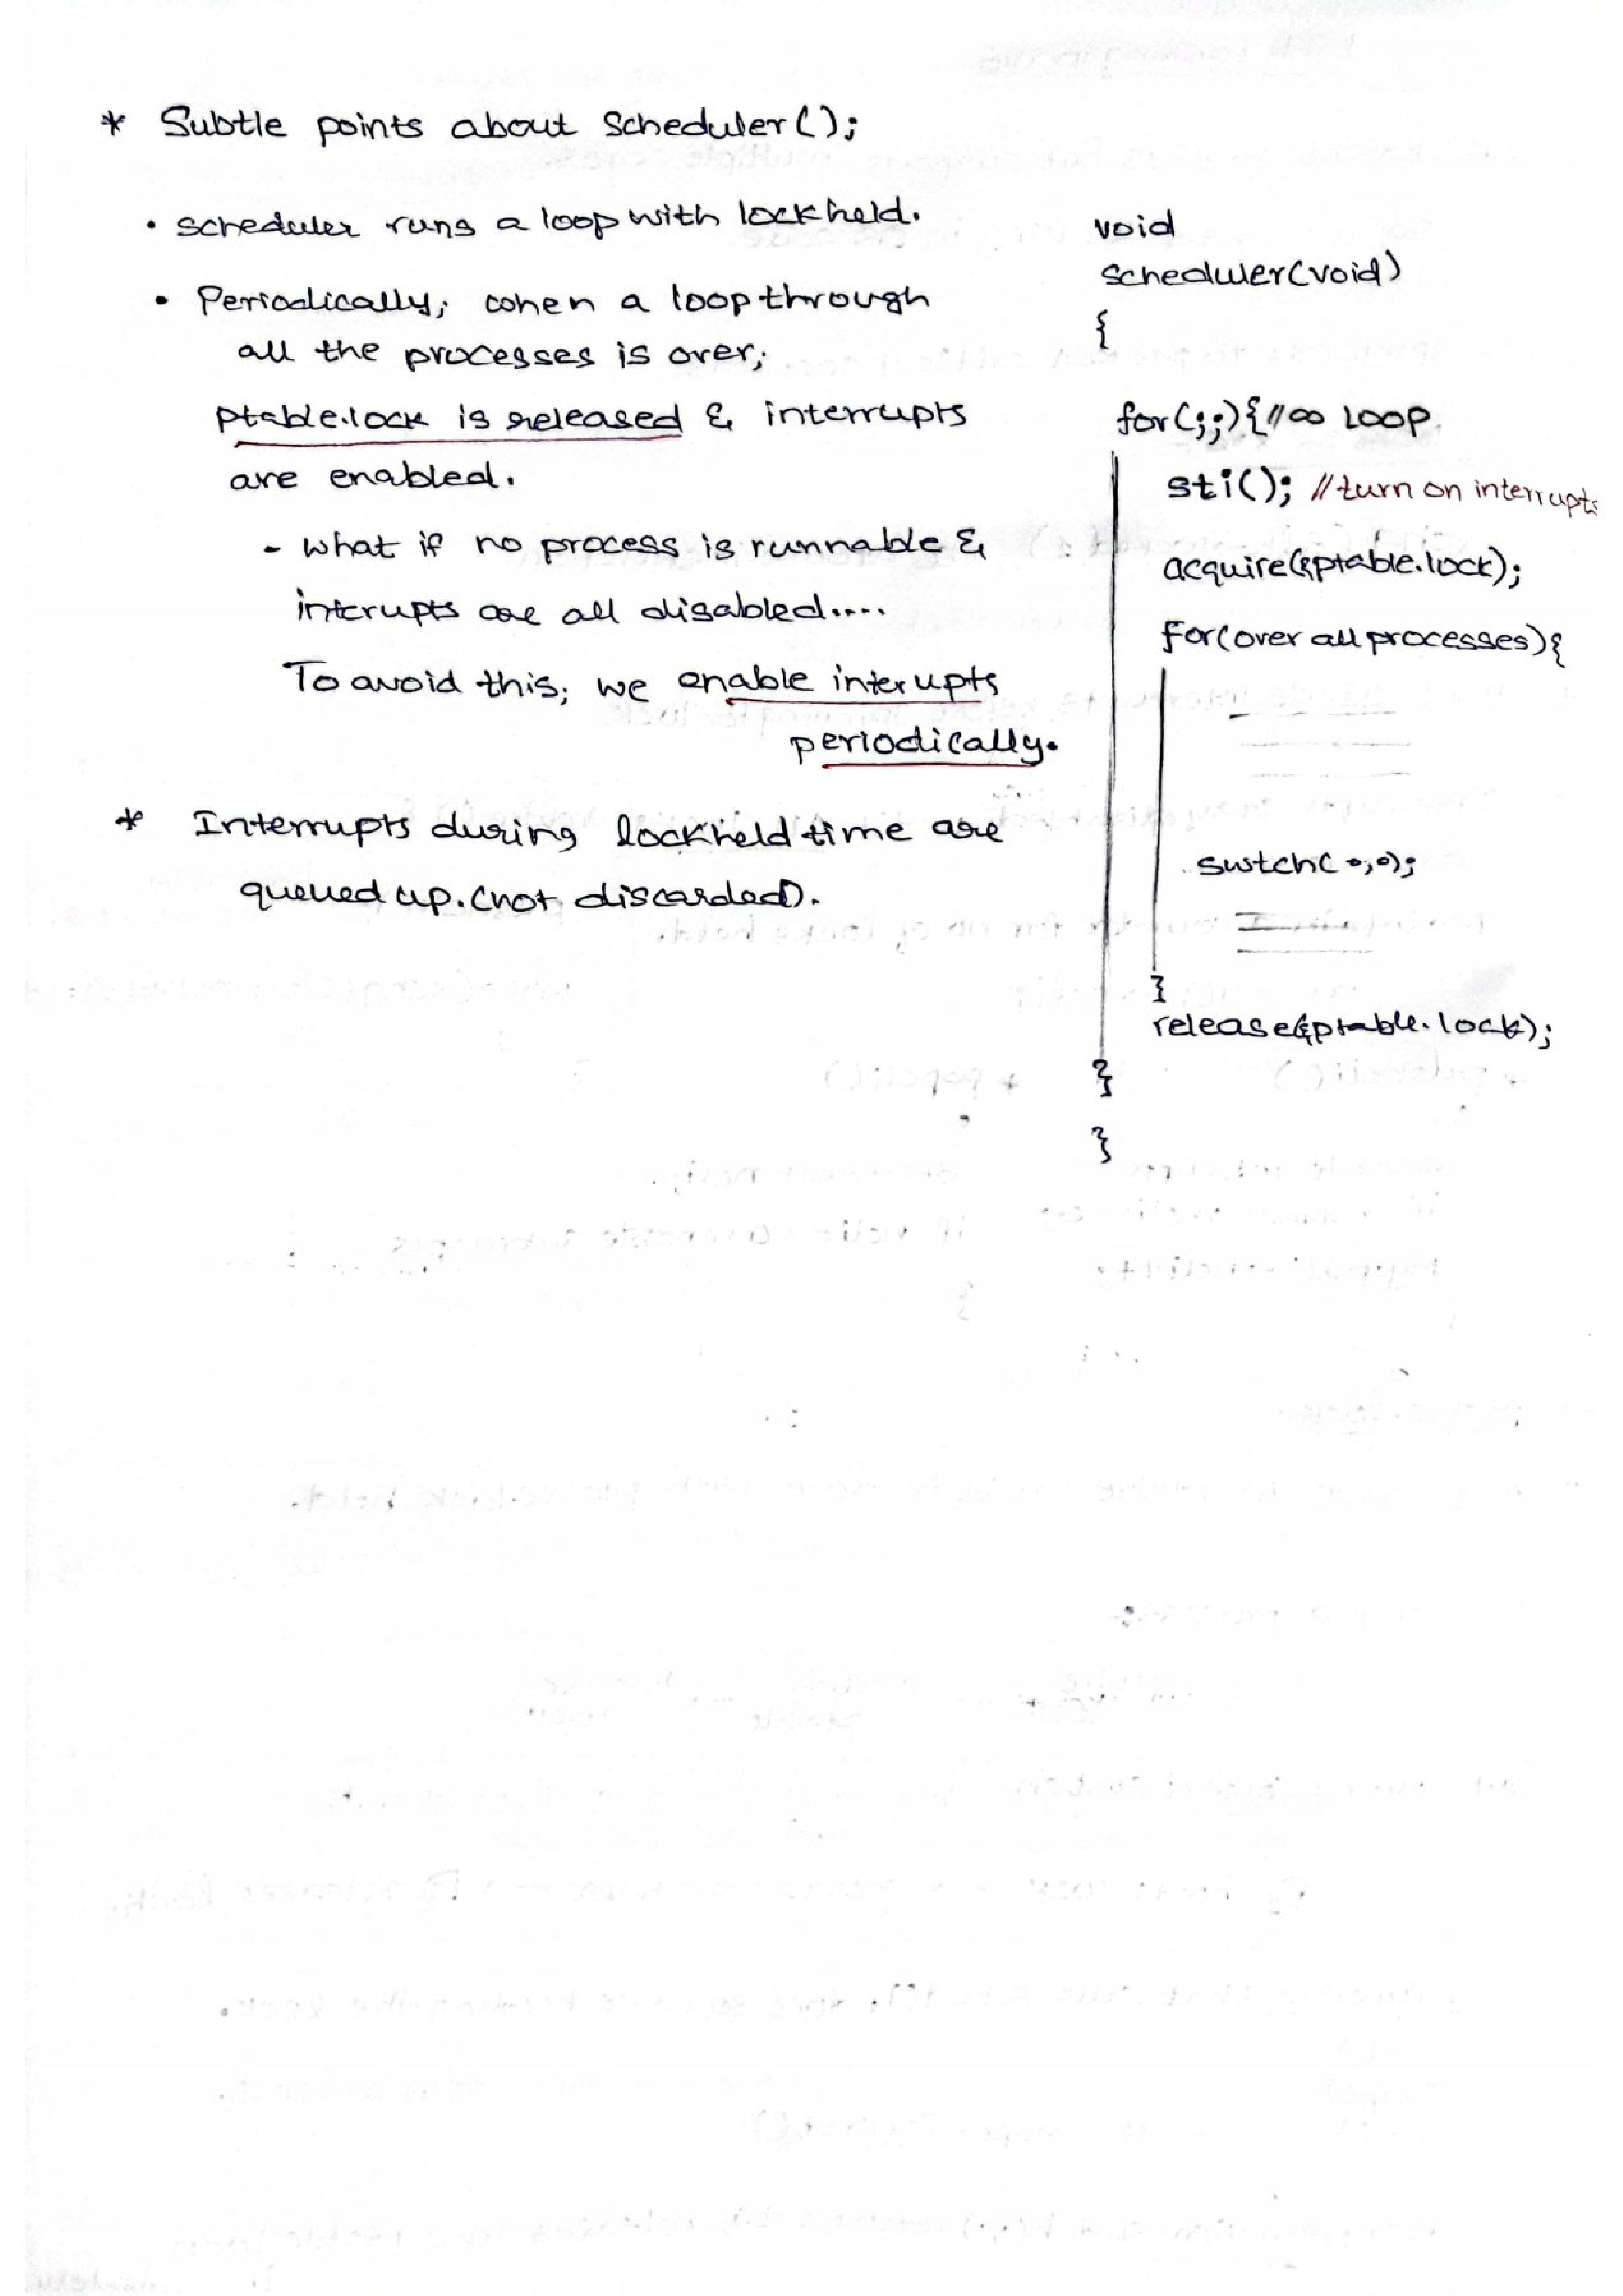 * Subtle points about scheduler();
• scheduler runs a loop with lock held.
• Periodically; when a loop through
all the processes is over;
ptable.lock is released & interrupts
are enabled.
- what if no process is runnable &
interupts are all disabled....
To avoid this; we enable interupts
periodically.
* Interrupts during lock held time are
queued up. (not discarded).
void
scheduler(void)
{
for(;;){//∞ loop
sti(); //turn on interrupts
acquire(&ptable.lock);
for(over all processes){
swtch( , );
}
release(&ptable.lock);
}
}